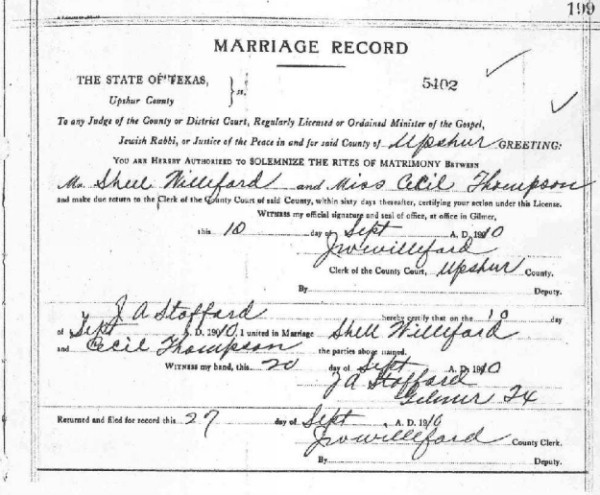 199
MARRIAGE RECORD
THE STATE OF TEXAS,
Upshur County } ss.
5402
To any Judge of the County or District Court, Regularly Licensed or Ordained Minister of the Gospel,
Jewish Rabbi, or Justice of the Peace in and for said County of Upshur GREETING:
YOU ARE HEREBY AUTHORIZED TO SOLEMNIZE THE RITES OF MATRIMONY BETWEEN
Mr. Shell Williford and Miss Cecil Thompson
and make due return to the Clerk of the County Court of said County, within sixty days thereafter, certifying your action under this License.
WITNESS my official signature and seal of office, at office in Gilmer,
this 10 day of Sept A. D. 1910
Williford
Clerk of the County Court, Upshur County.
By Deputy.
I, J A Stofford hereby certify that on the 10 day
of Sept A. D. 1910, I united in Marriage Shell Williford
and Cecil Thompson the parties above named.
WITNESS my hand, this 20 day of Sept A. D. 1910
J A Stofford
Gilmer Tx
Returned and filed for record this 27 day of Sept, A. D. 1910
Williford County Clerk.
By Deputy.